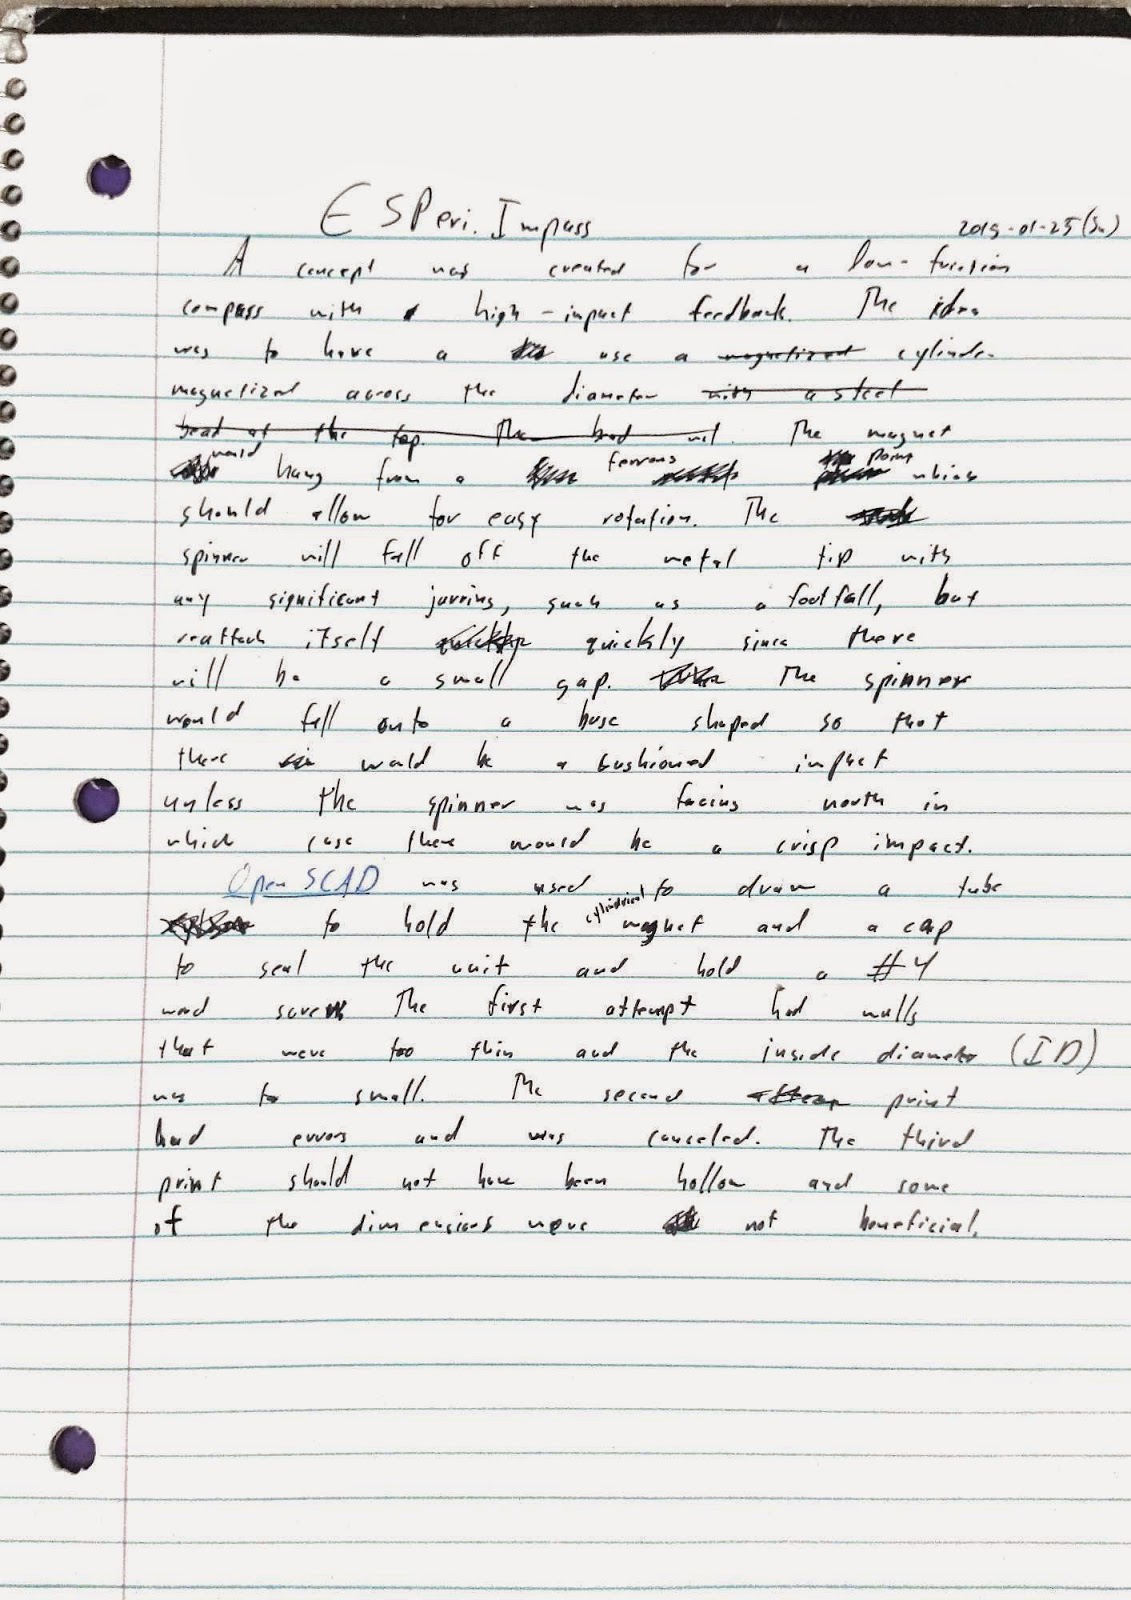 ESPeri.Impass
2015-01-25(Su)
A concept was created for a low-friction
compass with high-impact feedback. The idea
was to have a use a magnetized cylinder
magnetized across the diameter with a steel
bead at the top. The bead wil. The magnet
would hang from a ferrous point which
should allow for easy rotation. The
spinner will fall off the metal tip with
any significant jarring, such as a footfall, but
reattach itself quickly quickly since there
will be a small gap. The spinner
would fall onto a base shaped so that
there would be a cushioned impact
unless the spinner was facing north in
which case there would be a crisp impact.
OpenSCAD was used to draw a tube
to hold the cylindrical magnet and a cap
to seal the unit and hold a #4
wood screw. The first attempt had walls
that were too thin and the inside diameter (ID)
was to small. The second attemp print
had errors and was canceled. The third
print should not have been hollow and some
of the dimensions were not beneficial.